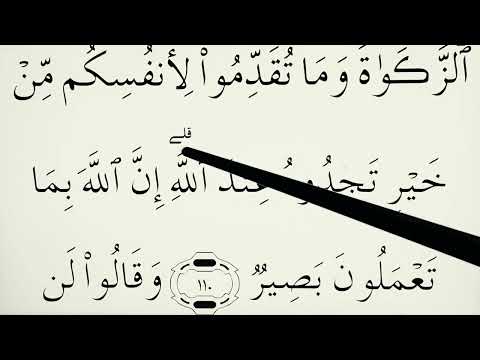 ٱلزَّكَوٰةَ وَمَا تُقَدِّمُوا۟ لِأَنفُسِكُم مِّنْ
خَيْرٍ تَجِدُوهُ عِندَ ٱللَّهِ ۗ إِنَّ ٱللَّهَ بِمَا
تَعْمَلُونَ بَصِيرٌ ١١٠ وَقَالُوا۟ لَن